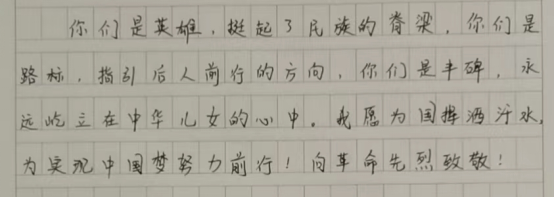 你们是英雄，挺起了民族的脊梁，你们是
路标，指引后人前行的方向，你们是丰碑，永
远屹立在中华儿女的心中。我愿为国挥洒汗水，
为实现中国梦努力前行！向革命先烈致敬！